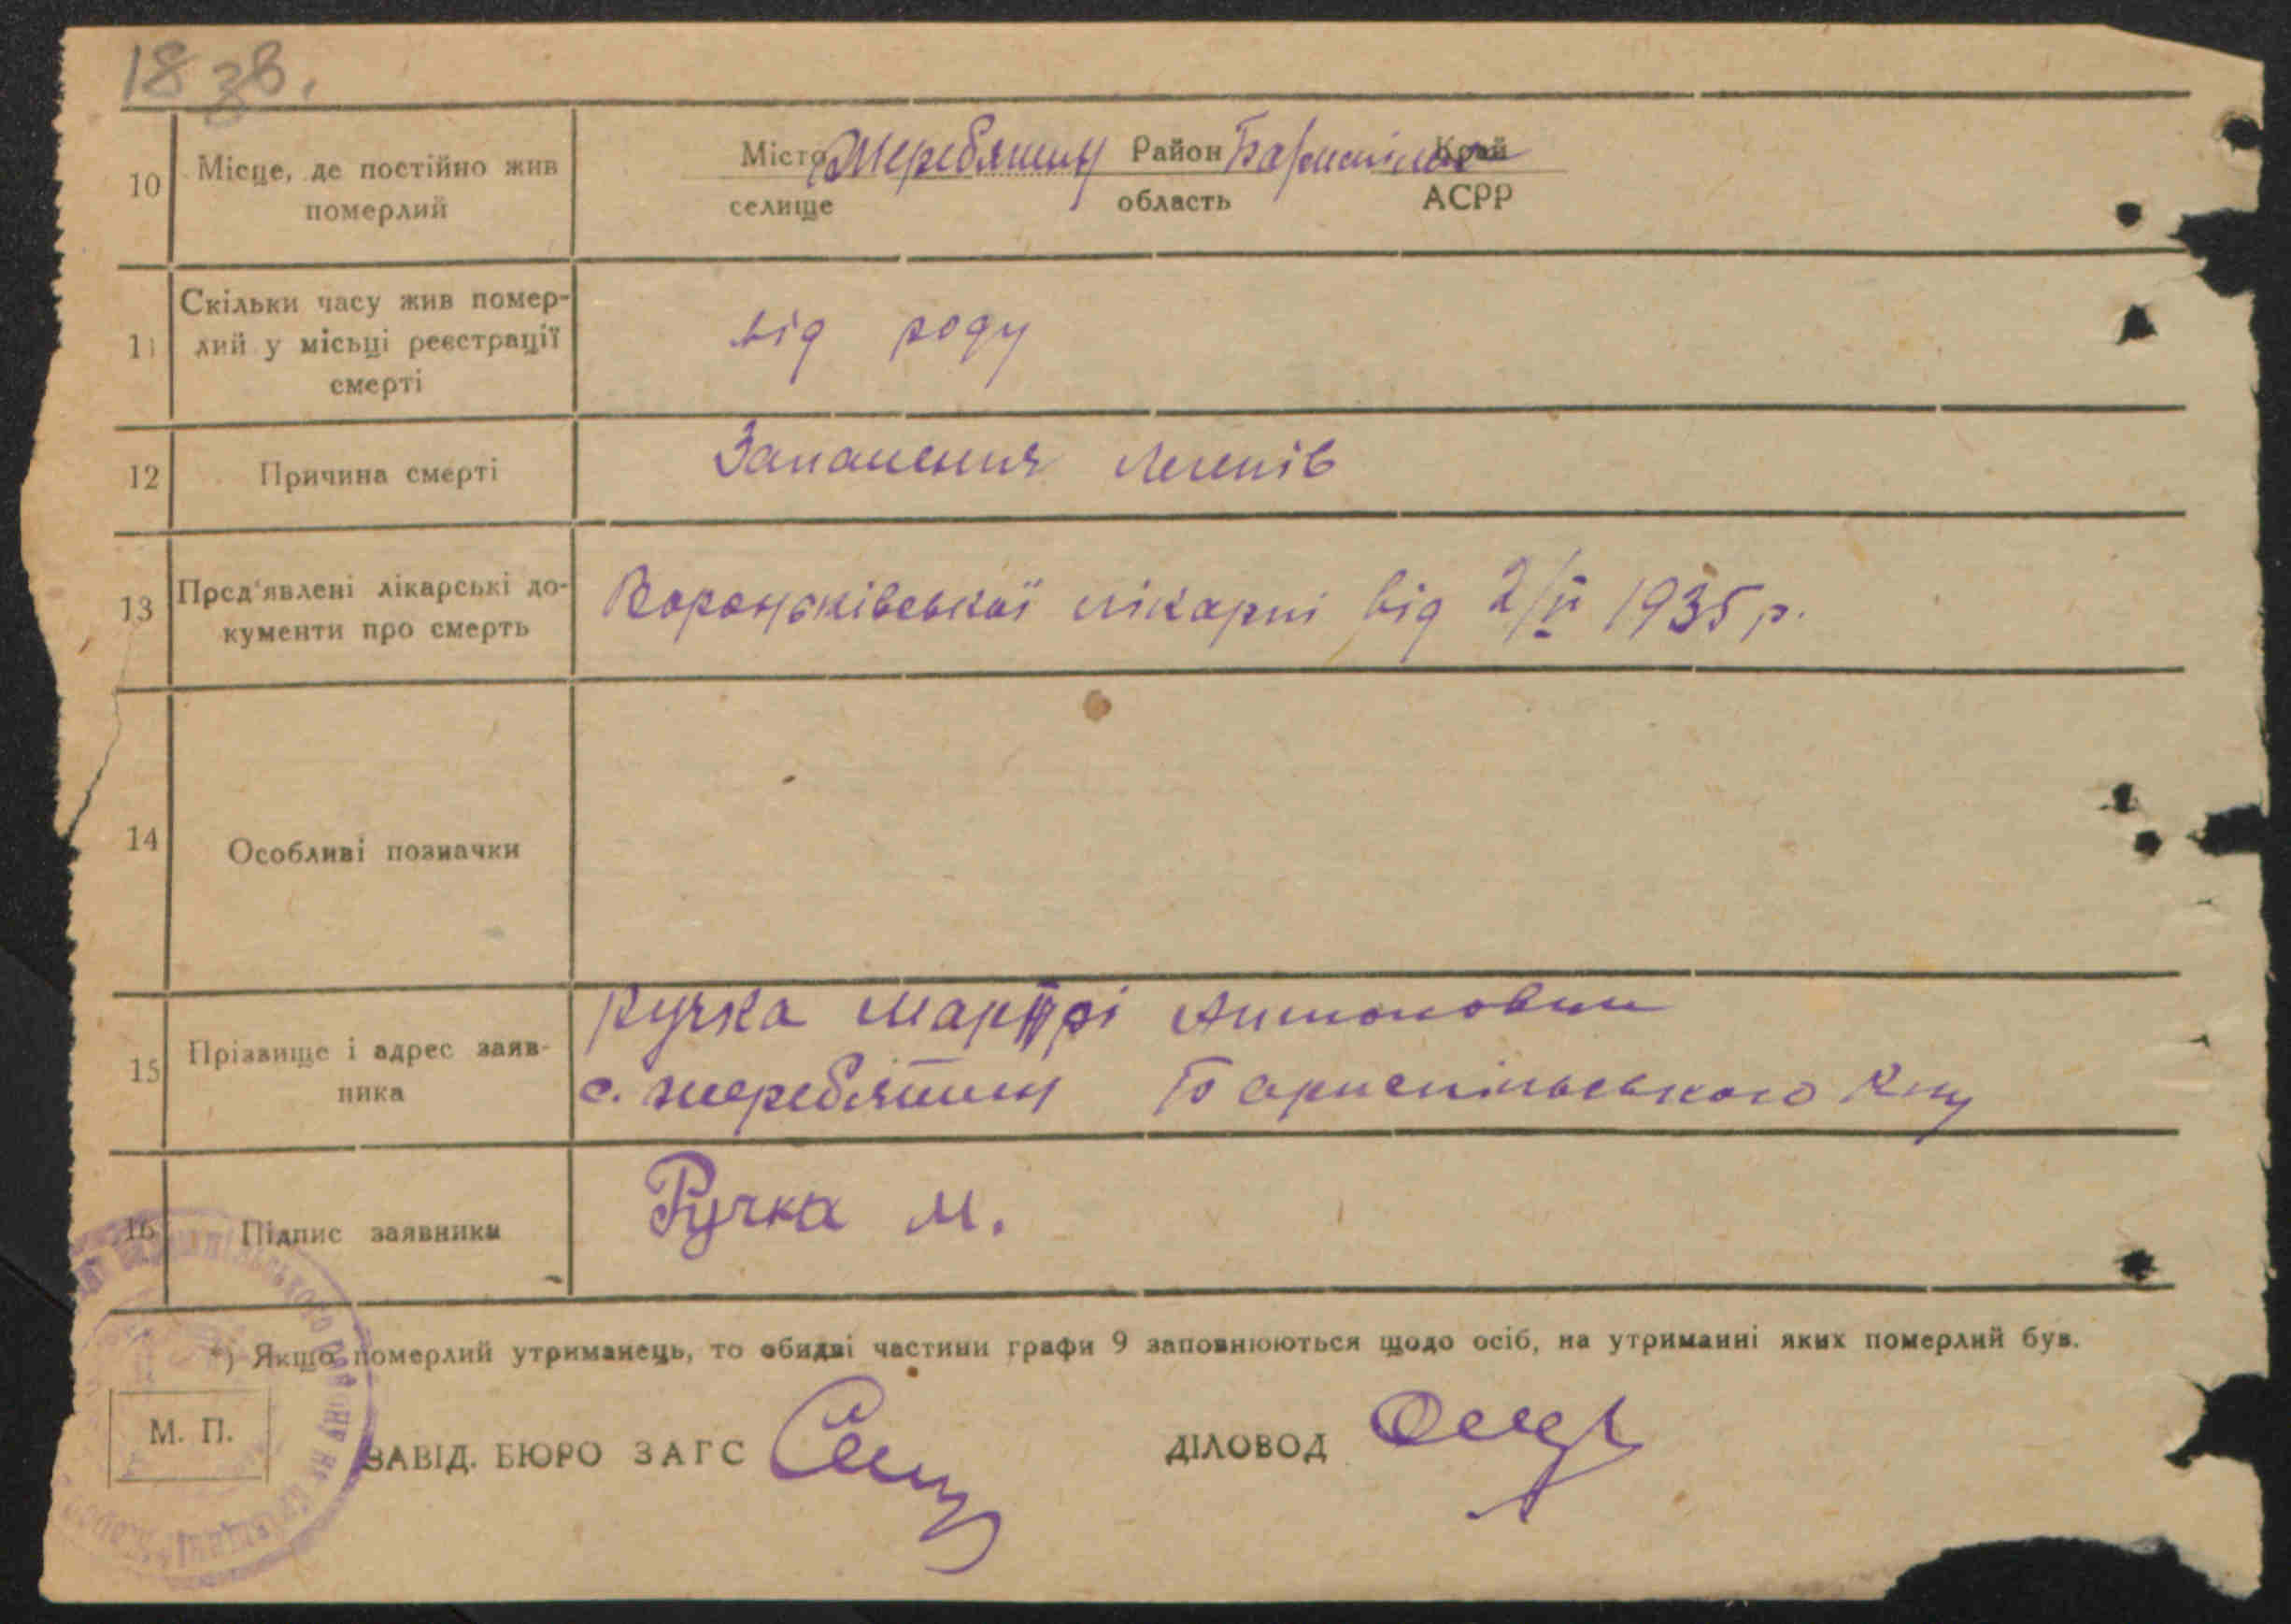 18 зв.
10 Місце, де постійно жив померлий
Місто Жеребятин Район Бориспільск Край
селище область АСРР
11 Скільки часу жив помер-
лий у місьці реєстрації
смерті
від роду
12 Причина смерті Запалення легенів
13 Пред'явлені лікарські до-
кументи про смерть
Вороньківської лікарні від 2/V 1935 р.
14 Особливі позначки
15 Прізвище і адрес заяв-
ника
Ручка Марфі Антоновни
с. Жеребятин Бориспільського р-ну
16 Підпис заявника Ручка М.
*) Якщо померлий утриманець, то обидві частини графи 9 заповнюються щодо осіб, на утриманні яких померлий був.
М. П.
ЗАВІД. БЮРО ЗАГС ДІЛОВОД